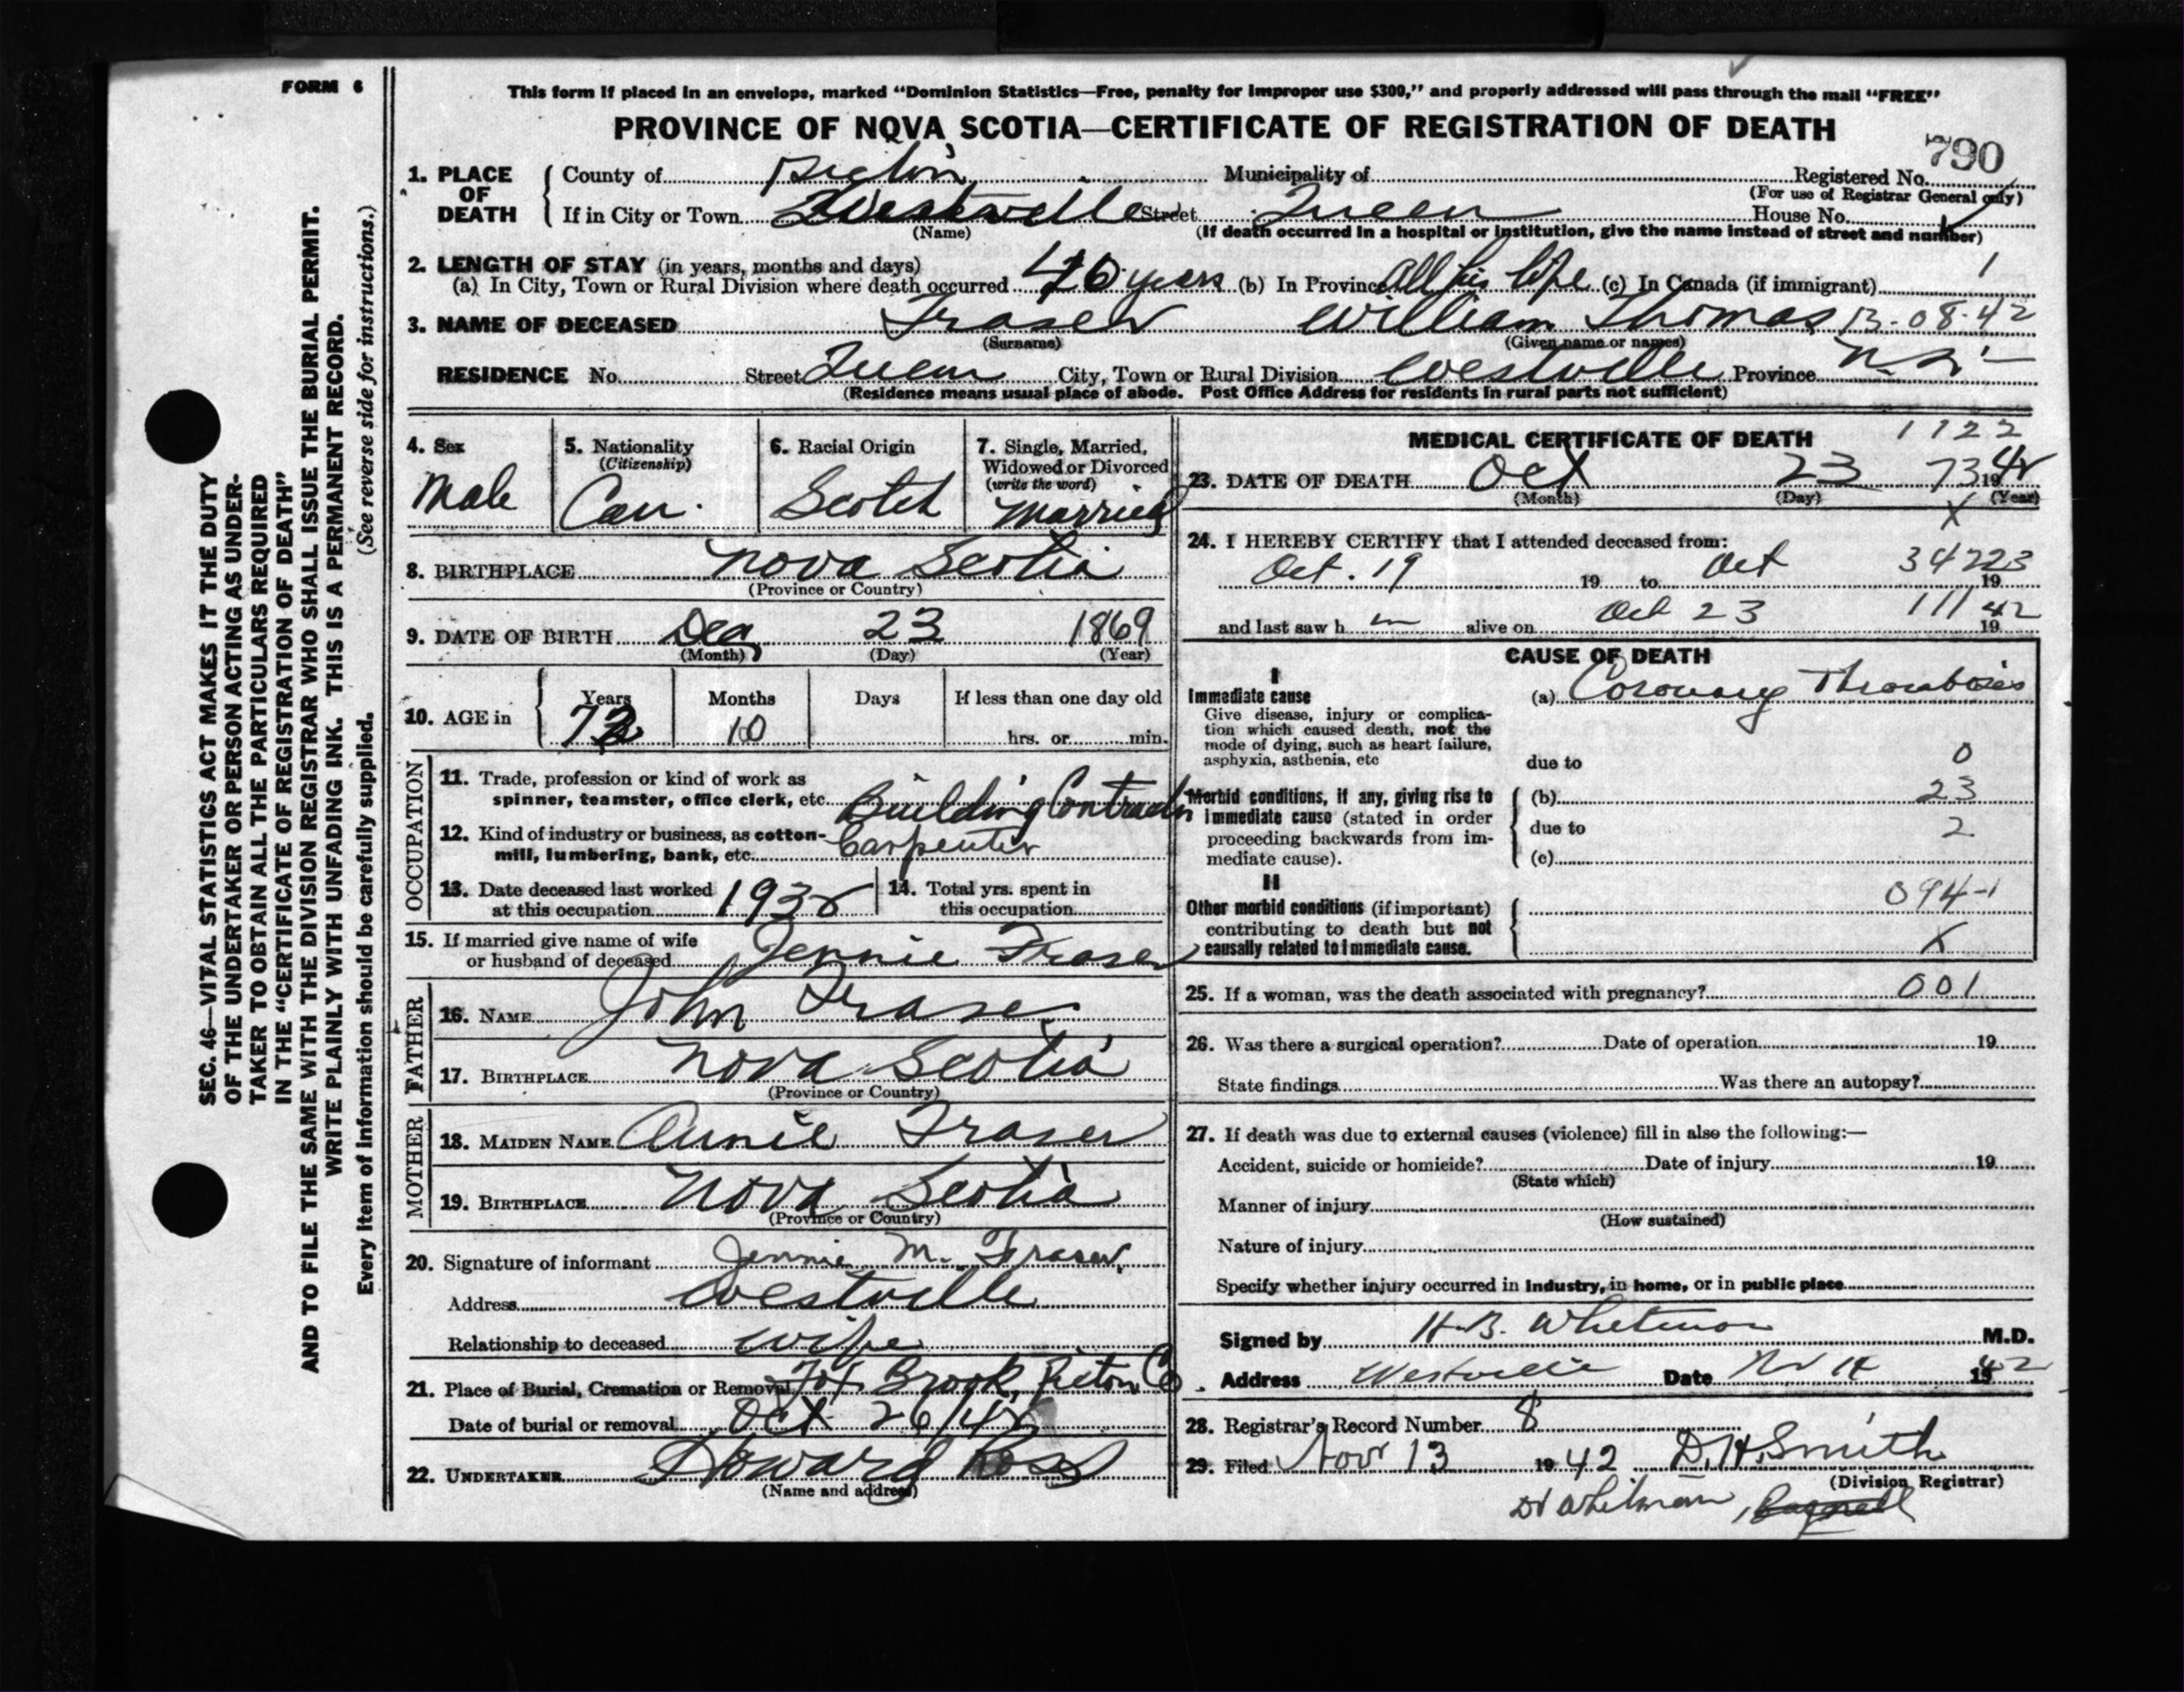 FORM 6
This form if placed in an envelope, marked "Dominion Statistics—Free, penalty for improper use $300," and properly addressed will pass through the mail "FREE"
PROVINCE OF NOVA SCOTIA—CERTIFICATE OF REGISTRATION OF DEATH
790
1. PLACE OF DEATH County of Pictou Municipality of Registered No.
(For use of Registrar General only)
If in City or Town Westville Street Queen House No.
(Name) (If death occurred in a hospital or institution, give the name instead of street and number)
2. LENGTH OF STAY (in years, months and days)
(a) In City, Town or Rural Division where death occurred 40 years (b) In Province All his life (c) In Canada (if immigrant) 1
3. NAME OF DECEASED Fraser William Thomas 13-08-42
(Surname) (Given name or names)
RESIDENCE No. Street Queen City, Town or Rural Division Westville Province N.S.
(Residence means usual place of abode. Post Office Address for residents in rural parts not sufficient)
4. Sex Male
5. Nationality (Citizenship) Can.
6. Racial Origin Scotch
7. Single, Married, Widowed or Divorced (write the word) Married
8. BIRTHPLACE Nova Scotia
(Province or Country)
9. DATE OF BIRTH Dec 23 1869
(Month) (Day) (Year)
10. AGE in Years 72 Months 10 Days If less than one day old hrs. or min.
OCCUPATION
11. Trade, profession or kind of work as spinner, teamster, office clerk, etc. Building Contractor
12. Kind of industry or business, as cotton-mill, lumbering, bank, etc. Carpenter
13. Date deceased last worked at this occupation 193
14. Total yrs. spent in this occupation
15. If married give name of wife or husband of deceased Jennie Fraser
FATHER
16. NAME John Fraser
17. BIRTHPLACE Nova Scotia
(Province or Country)
MOTHER
18. MAIDEN NAME Annie Fraser
19. BIRTHPLACE Nova Scotia
(Province or Country)
20. Signature of informant Jennie M. Fraser
Address Westville
Relationship to deceased wife
21. Place of Burial, Cremation or Removal Fox Brook, Pictou Co
Date of burial or removal Oct 26/42
22. UNDERTAKER Howard Ross
(Name and address)
MEDICAL CERTIFICATE OF DEATH 1122
23. DATE OF DEATH Oct 23 73 1942
(Month) (Day) (Year)
X
24. I HEREBY CERTIFY that I attended deceased from:
Oct. 19 19 to Oct 34223 19
and last saw h m alive on Oct 23 111 1942
CAUSE OF DEATH
I
Immediate cause (a) Coronary Thrombosis
Give disease, injury or complication which caused death, not the mode of dying, such as heart failure, asphyxia, asthenia, etc
due to 0
Morbid conditions, if any, giving rise to immediate cause (stated in order proceeding backwards from immediate cause).
(b) 23
due to 2
(c)
II
Other morbid conditions (if important) contributing to death but not causally related to immediate cause.
094-1
X
25. If a woman, was the death associated with pregnancy? 001
26. Was there a surgical operation? Date of operation 19
State findings Was there an autopsy?
27. If death was due to external causes (violence) fill in also the following:—
Accident, suicide or homicide? Date of injury 19
(State which)
Manner of injury
(How sustained)
Nature of injury
Specify whether injury occurred in industry, in home, or in public place
Signed by H.B. Whitman M.D.
Address Westville Date Nov 1942
28. Registrar's Record Number 8
29. Filed Nov 13 1942 D.H. Smith
(Division Registrar)
Dr Whitman
SEC. 46—VITAL STATISTICS ACT MAKES IT THE DUTY
OF THE UNDERTAKER OR PERSON ACTING AS UNDER-
TAKER TO OBTAIN ALL THE PARTICULARS REQUIRED
IN THE "CERTIFICATE OF REGISTRATION OF DEATH"
AND TO FILE THE SAME WITH THE DIVISION REGISTRAR WHO SHALL ISSUE THE BURIAL PERMIT.
WRITE PLAINLY WITH UNFADING INK. THIS IS A PERMANENT RECORD.
Every item of information should be carefully supplied. (See reverse side for instructions.)